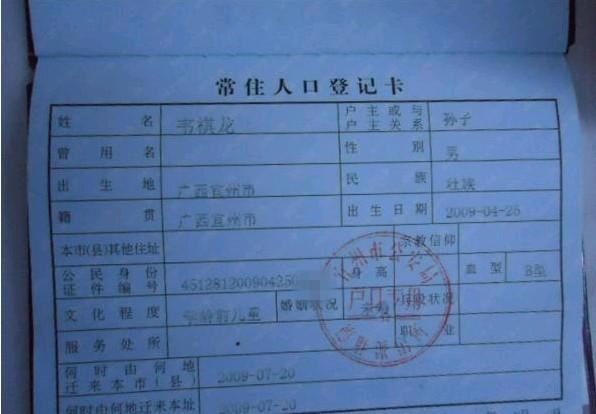 常住人口登记卡
姓名 韦祺龙 户主或与户主关系 孙子
曾用名 性别 男
出生地 广西宜州市 民族 壮族
籍贯 广西宜州市 出生日期 2009-04-25
本市(县)其他住址 宗教信仰
公民身份证件编号 45128120090425 身高 血型 B型
文化程度 学龄前儿童 婚姻状况 兵役状况
服务处所 职业
何时由何地迁来本市(县) 2009-07-20
何时由何地迁来本址 2009-07-20